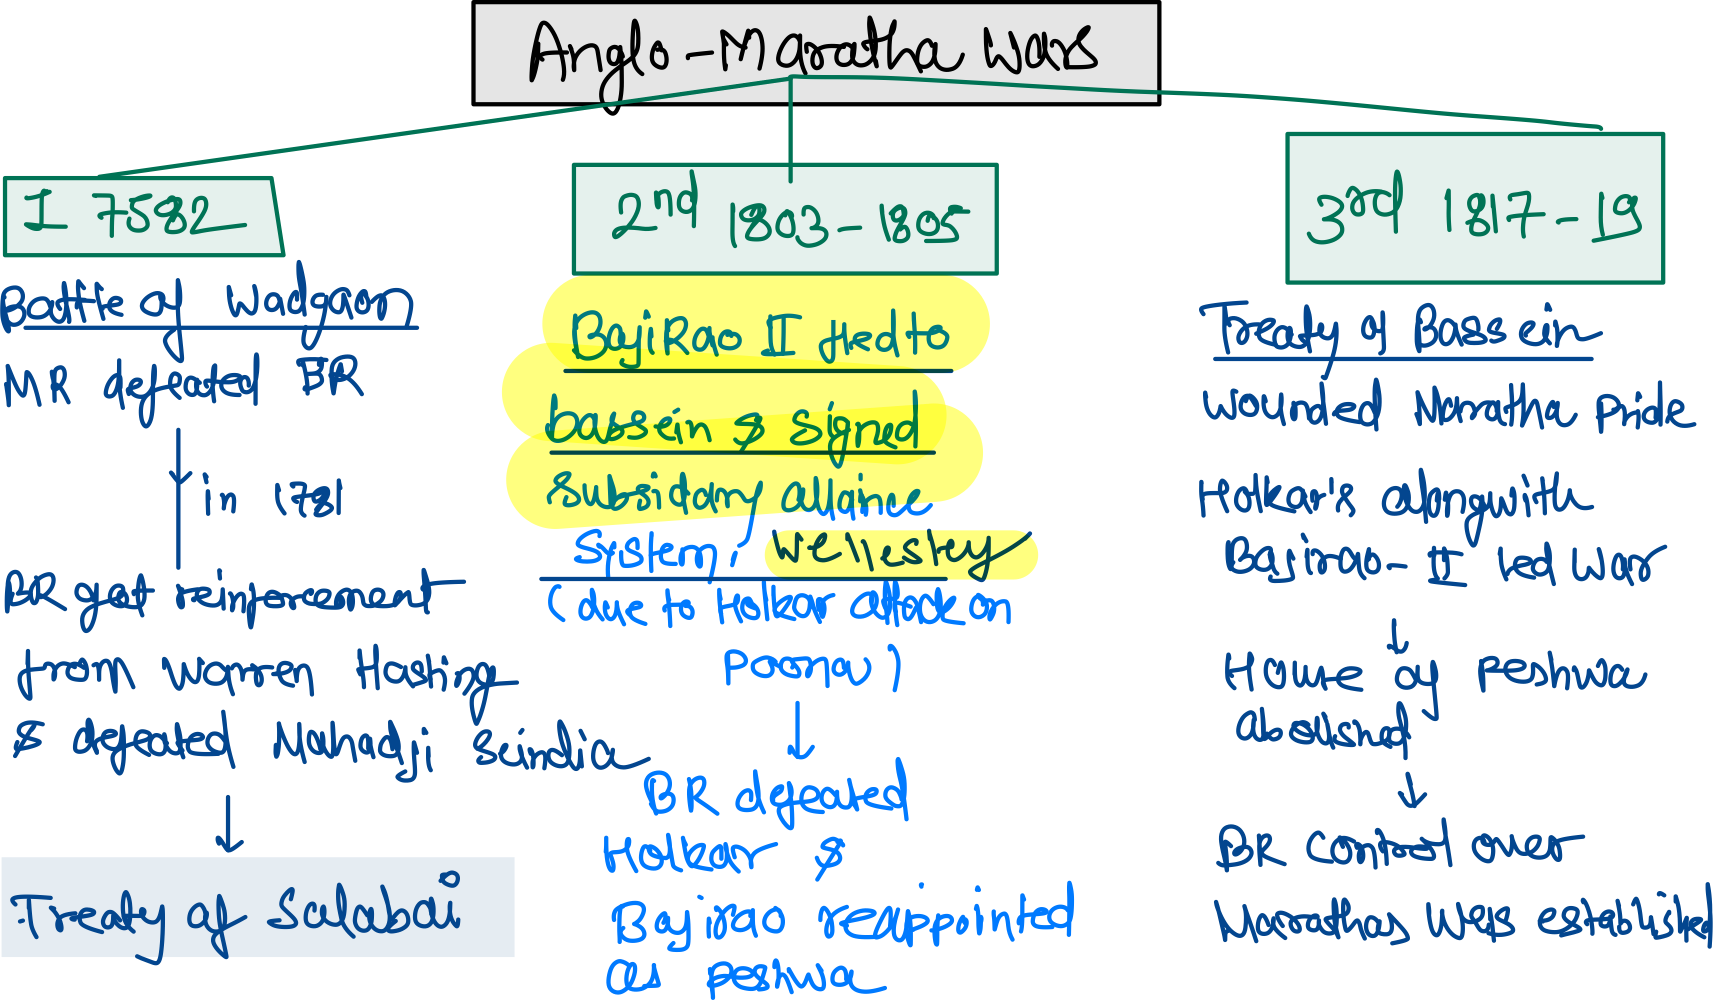 Anglo-Maratha Wars
I 7582
Battle of Wadgaon
MR defeated BR
in 1781
BR got reinforcement
from Warren Hasting
& defeated Mahadji Scindia
Treaty of Salabai
2nd 1803-1805
BajiRao II fled to
bassein & signed
Subsidary allance
System, Wellesley
(due to Holkar attack on
Poona)
BR defeated
Holkar &
Bajirao reappointed
as peshwa
3rd 1817-19
Treaty of Bassein
wounded Maratha Pride
Holkar's alongwith
Bajirao-II led War
House of Peshwa
abolished
BR control over
Marathas was established